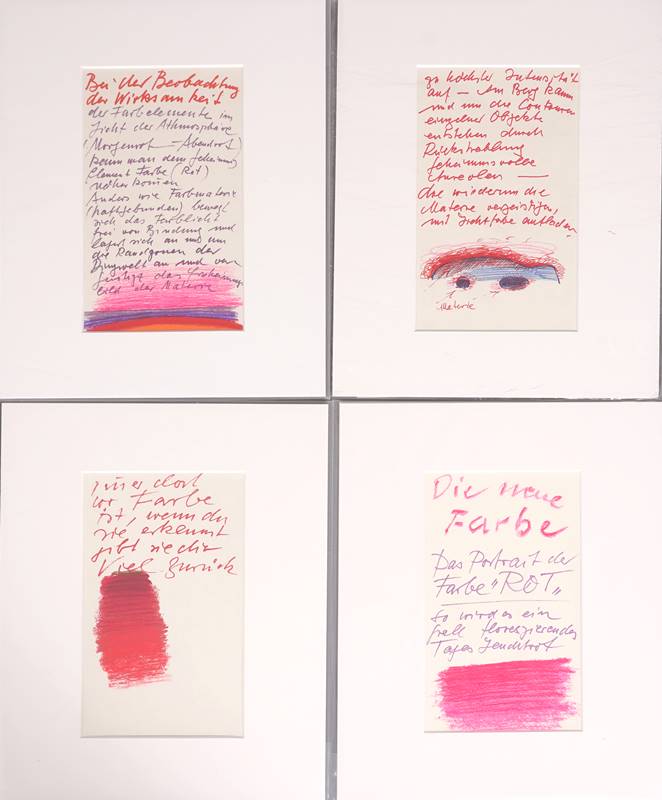 Bei der Beobachtung
der Wirksamkeit
der Farbelemente im
Licht der Athmosphäre
(Morgenrot – Abendrot)
kann man dem
Element Farbe (Rot)
näher kommen
Anders wie Farbmaterie
(haftgebunden) bewegt
sich das Farblicht
frei von Bindung und
lagert sich an und um
die Randzonen der
Dingwelt an und
das Erscheinungs
bild der Materie
zu höchster Intensität
auf – Am Berg kann
und um die Conturen
einzelner Objekte
entstehen durch
Rückstrahlung
geheimnsvolle
die wiederum die
Materie vergeistigen,
mit Lichtfarbe aufladen.
Materie
immer dort
wo Farbe
ist, wenn du
sie erkennst
gibt sie dir
Viel Zurück
Die neue
Farbe
Das Portrait der
Farbe „ROT„
so wird es ein
grell floreszierendes
Tages Leuchtrot